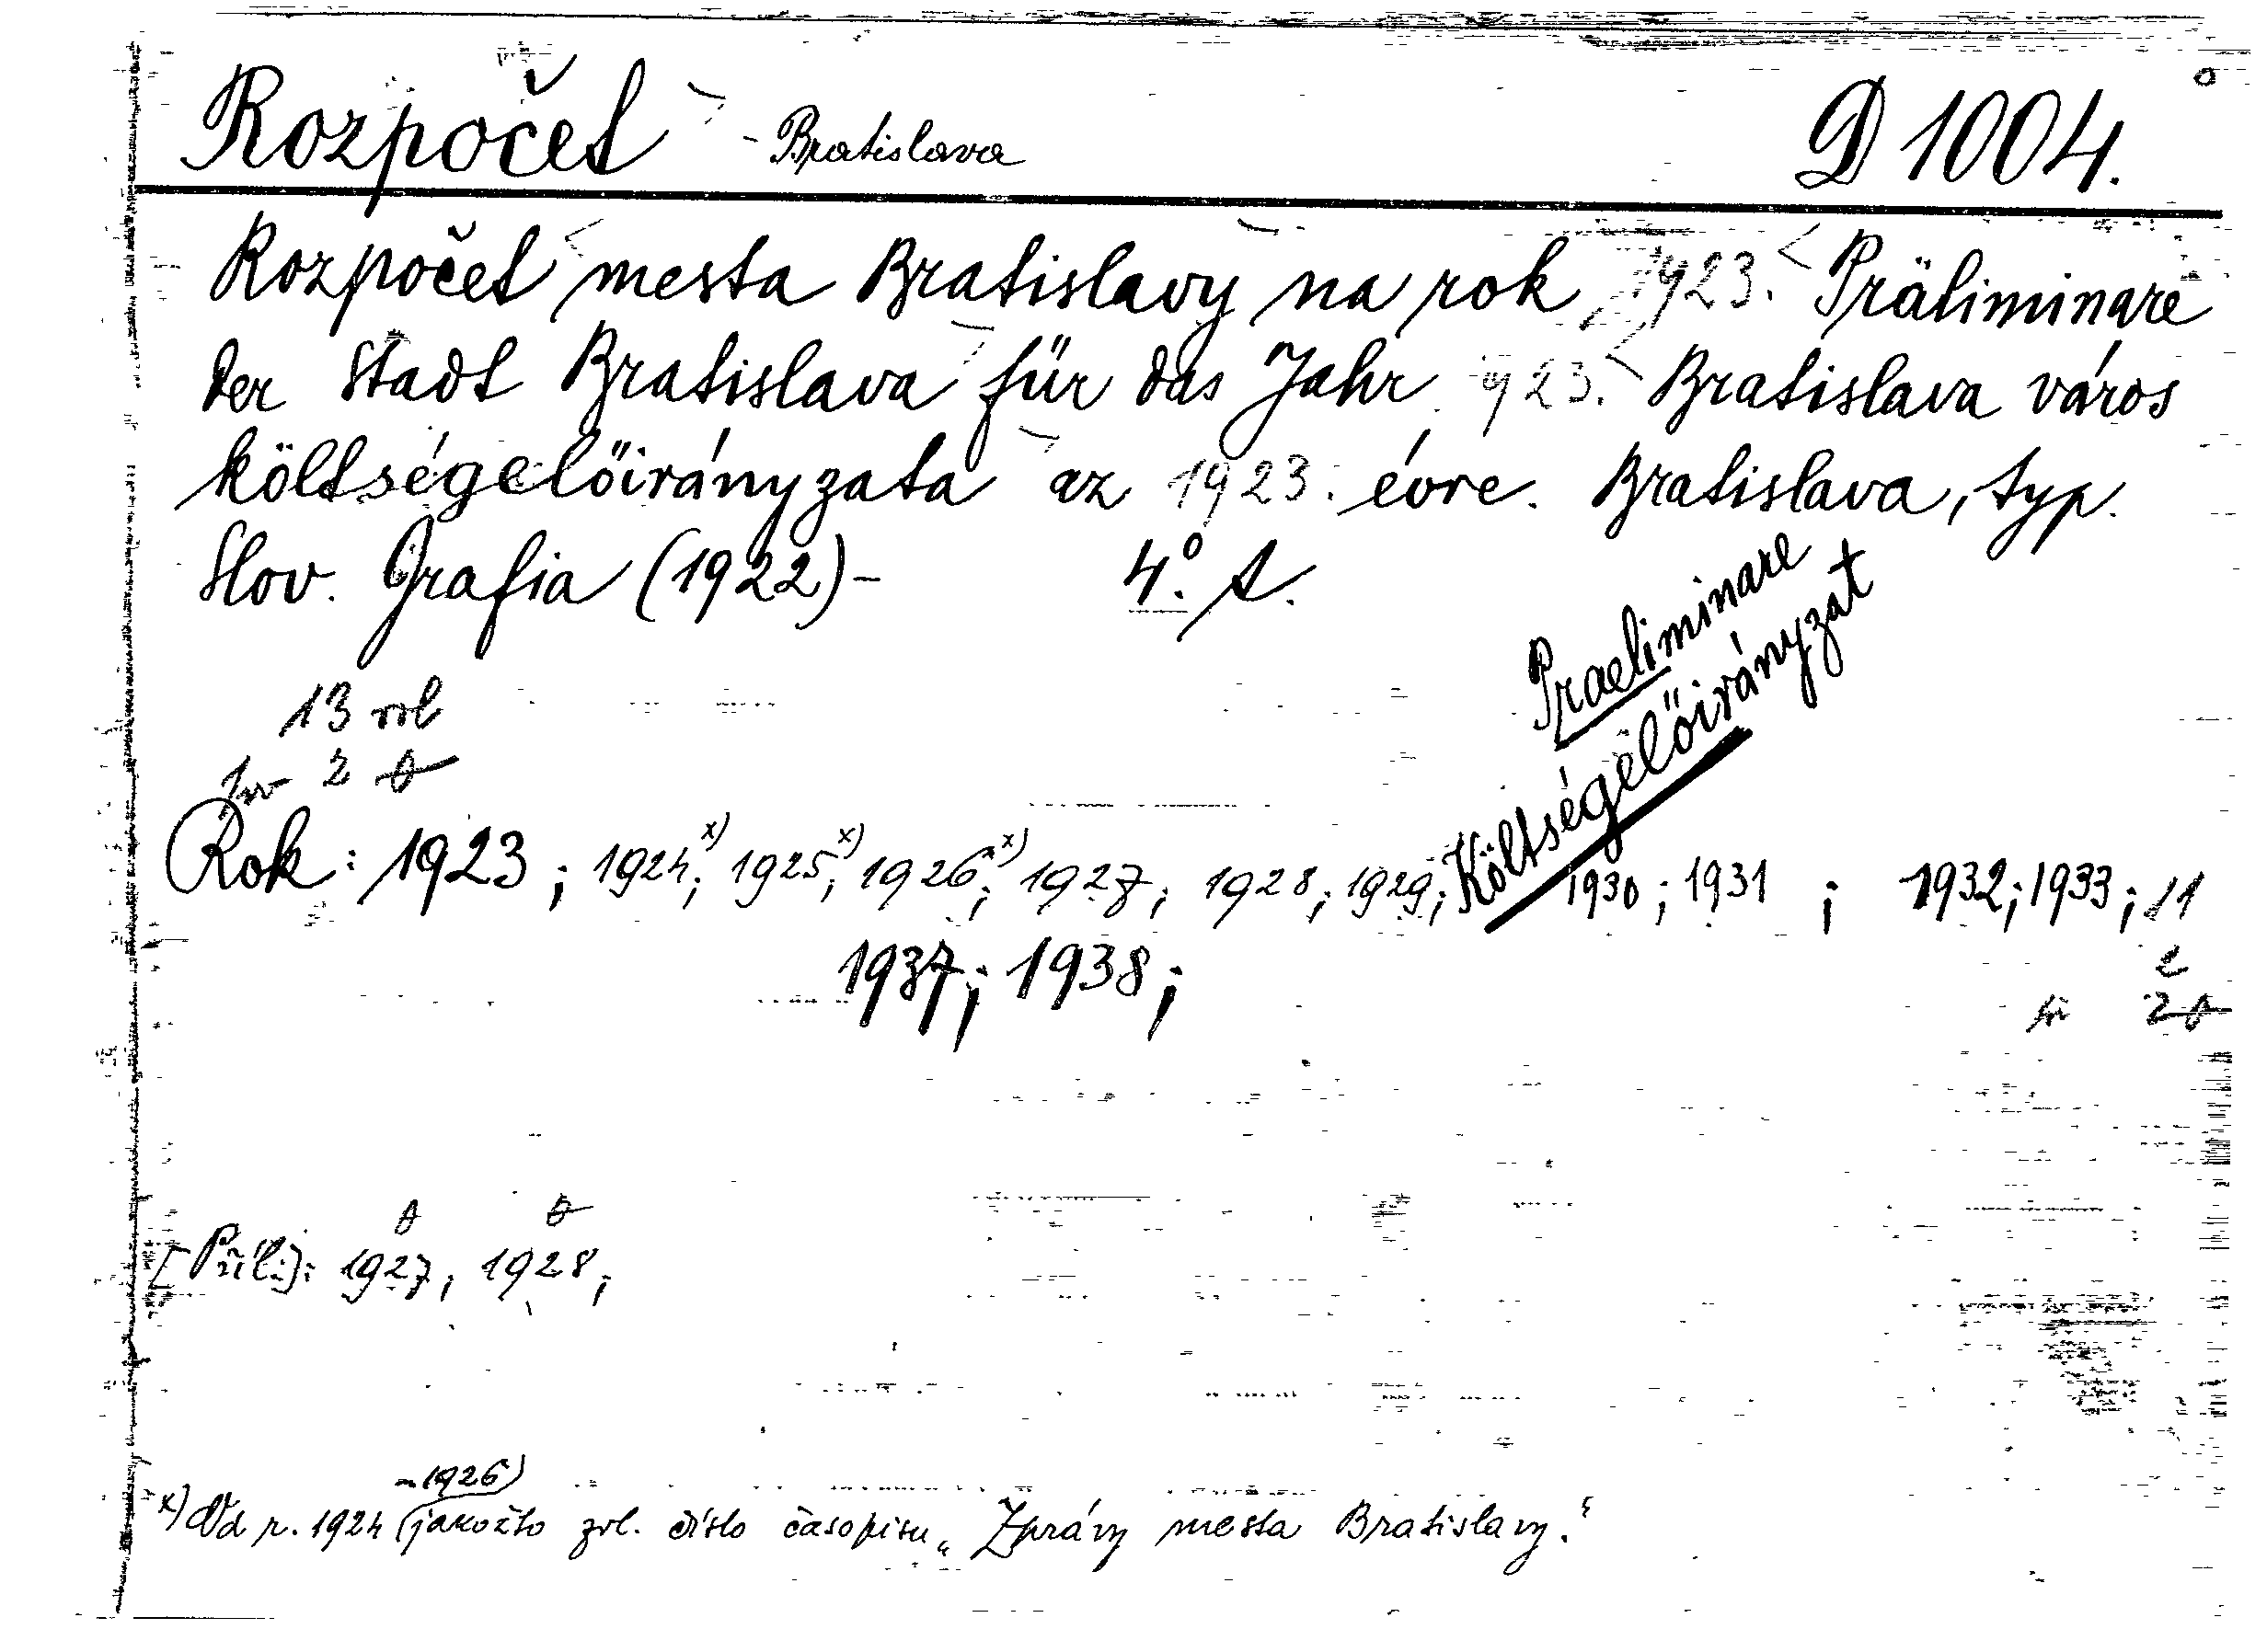 Rozpočet - Bratislava D 1004.
Rozpočet mesta Bratislavy na rok 1923. Präliminare
der Stadt Bratislava für das Jahr 1923. Bratislava város
költségelőirányzata az 1923. évre. Bratislava, typ.
Slov. Grafia (1922)- 4.° s.
Praeliminare
Költségelőirányzat
13
2
Rok: 1923; 1924;x) 1925;x) 1926;x) 1927; 1928; 1929; 1930; 1931; 1932; 1933; 11
1937; 1938;
[Příl.]: 1927; 1928;
-1926)
x) Od r. 1924 (jakožto zvl. číslo časopisu „Zprávy mesta Bratislavy."